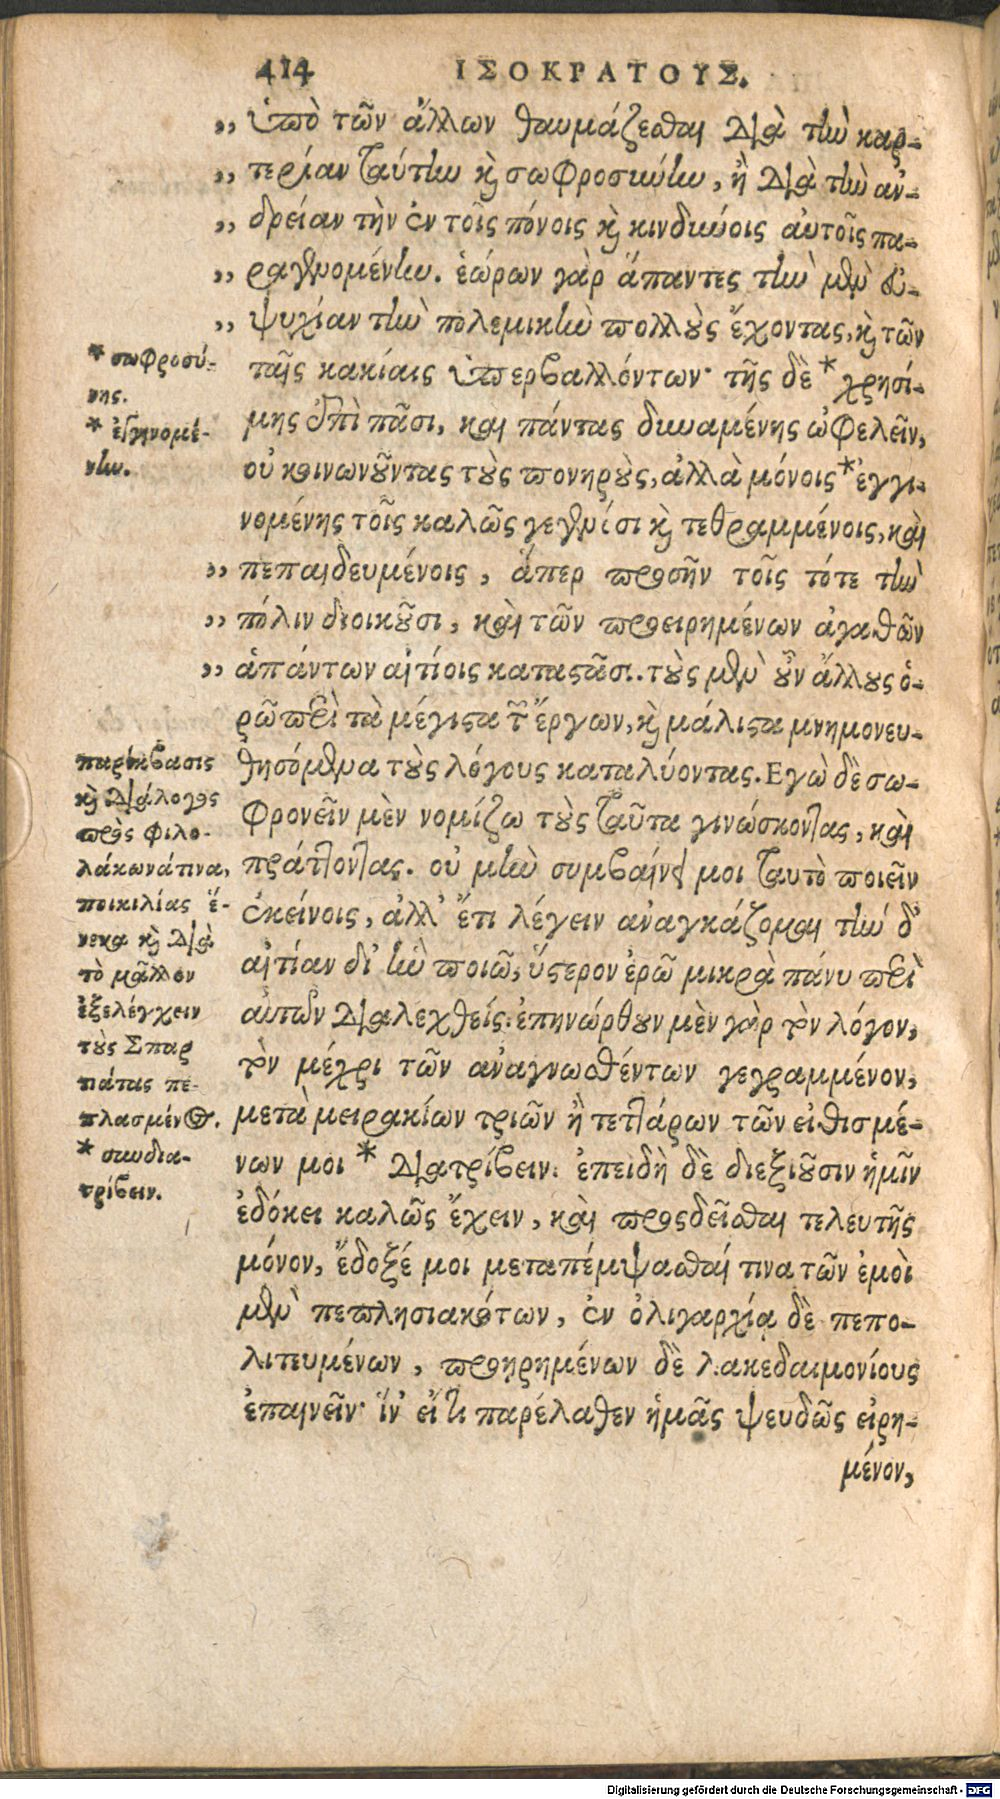 414 ΙΣΟΚΡΑΤΟΥΣ.
,, ὑπὸ τῶν ἄλλων θαυμάζεσθαι διὰ τὴν καρ-
,, τερίαν ταύτην καὶ σωφροσύνην, ἢ διὰ τὴν ἀν-
,, δρείαν τὴν ἐν τοῖς πόνοις καὶ κινδύνοις αὐτοῖς πα-
,, ραγενομένην. ἑώρων γὰρ ἅπαντες τὴν μὲν εὐ-
,, ψυχίαν τὴν πολεμικὴν πολλοὺς ἔχοντας, καὶ τῶν
ταῖς κακίαις ὑπερβαλλόντων· τῆς δὲ * χρησί-
μης ἐπὶ πᾶσι, καὶ πάντας δυναμένης ὠφελεῖν,
οὐ κοινωνοῦντας τοὺς πονηροὺς, ἀλλὰ μόνοις * ἐγγι-
νομένης τοῖς καλῶς γεγονόσι καὶ τεθραμμένοις, καὶ
,, πεπαιδευμένοις, ἅπερ προσῆν τοῖς τότε τὴν
,, πόλιν διοικοῦσι, καὶ τῶν προειρημένων ἀγαθῶν
,, ἁπάντων αἰτίοις καταστᾶσι. τοὺς μὲν οὖν ἄλλους ὁ-
ρῶ περὶ τὰ μέγιστα τῶν ἔργων, καὶ μάλιστα μνημονευ-
θησόμενα τοὺς λόγους καταλύοντας. Εγὼ δὲ σω-
φρονεῖν μὲν νομίζω τοὺς ταῦτα γινώσκοντας, καὶ
πράττοντας. οὐ μὴν συμβαίνει μοι ταυτὸ ποιεῖν
ἐκείνοις, ἀλλ' ἔτι λέγειν ἀναγκάζομαι τὴν δ'
αἰτίαν δι' ἣν ποιῶ, ὕστερον ἐρῶ μικρὰ πάνυ περὶ
αὐτῶν διαλεχθείς. ἐπηνώρθουν μὲν γὰρ τὸν λόγον,
τὸν μέχρι τῶν ἀναγνωσθέντων γεγραμμένον,
μετὰ μειρακίων τριῶν ἢ τεττάρων τῶν εἰθισμέ-
νων μοι * διατρίβειν. ἐπειδὴ δὲ διεξιοῦσιν ἡμῖν
ἐδόκει καλῶς ἔχειν, καὶ προςδεῖσθαι τελευτῆς
μόνον, ἔδοξέ μοι μεταπέμψασθαί τινα τῶν ἐμοὶ
μὲν πεπλησιακότων, ἐν ὀλιγαρχίᾳ δὲ πεπο-
λιτευμένων, προῃρημένων δὲ Λακεδαιμονίους
ἐπαινεῖν· ἵν' εἴ τι παρέλαθεν ἡμᾶς ψευδῶς εἰρη-
μένον,
* σωφροσύ-
νης.
* ἐγγινομέ-
νην.
παρέκβασις
καὶ διάλογος
πρὸς φιλο-
λάκωνάτινα,
ποικιλίας ἕ-
νεκα καὶ διὰ
τὸ μᾶλλον
ἐξελέγχειν
τοὺς Σπαρ
τιάτας πε-
πλασμένος.
* συνδια-
τρίβειν.
Digitalisierung gefördert durch die Deutsche Forschungsgemeinschaft - DFG